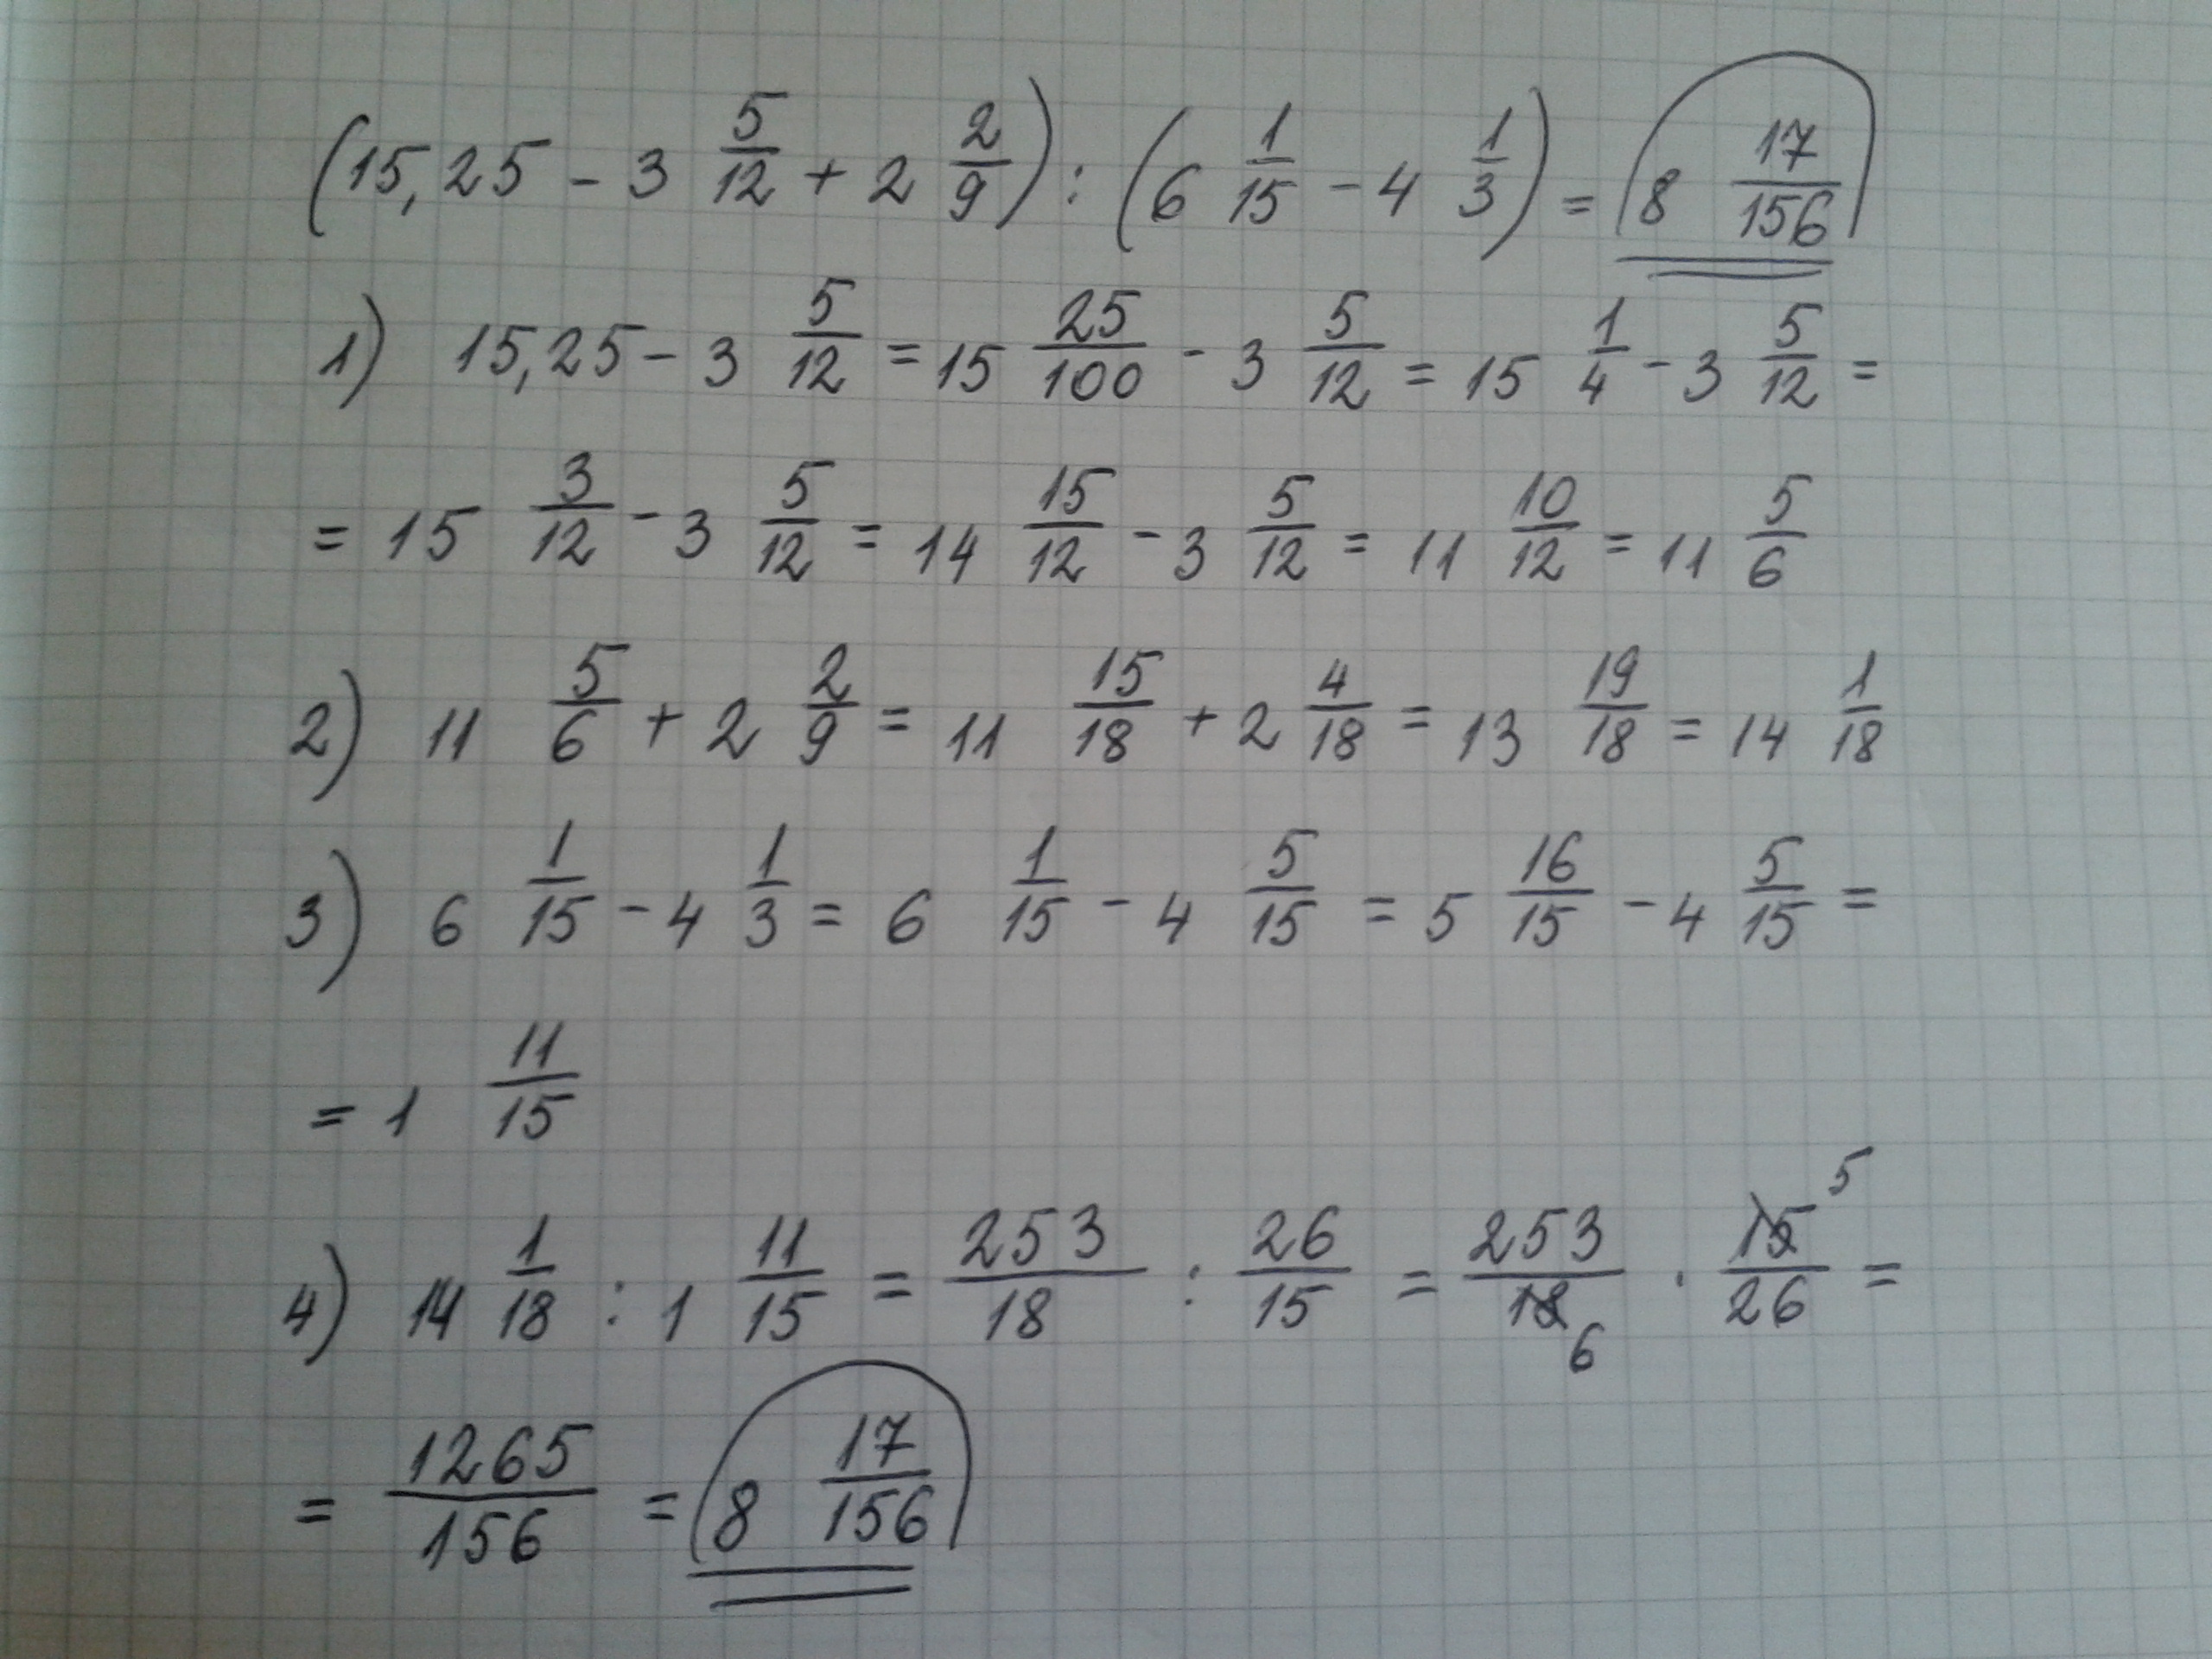 (15,25 - 3 5/12 + 2 2/9) : (6 1/15 - 4 1/3) = 8 17/156
1) 15,25 - 3 5/12 = 15 25/100 - 3 5/12 = 15 1/4 - 3 5/12 =
= 15 3/12 - 3 5/12 = 14 15/12 - 3 5/12 = 11 10/12 = 11 5/6
2) 11 5/6 + 2 2/9 = 11 15/18 + 2 4/18 = 13 19/18 = 14 1/18
3) 6 1/15 - 4 1/3 = 6 1/15 - 4 5/15 = 5 16/15 - 4 5/15 =
= 1 11/15
4) 14 1/18 : 1 11/15 = 253/18 : 26/15 = 253/18 6 · 15 5/26 =
= 1265/156 = 8 17/156